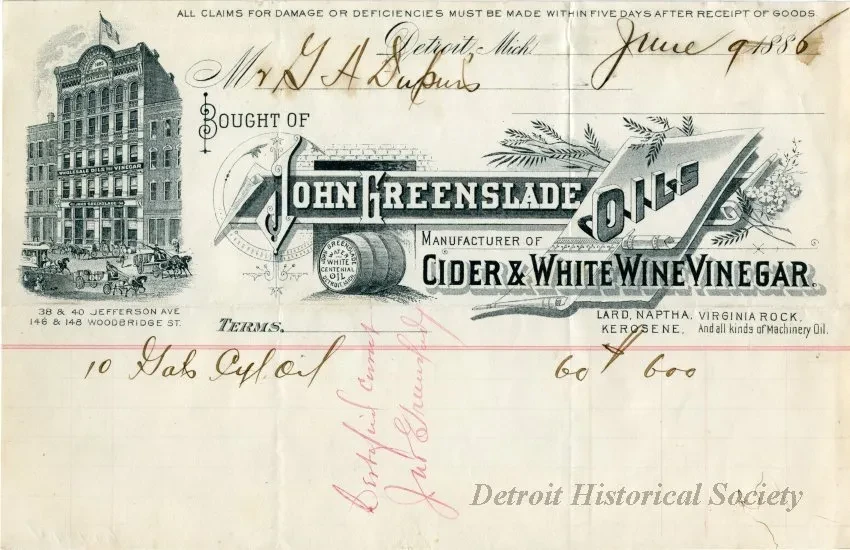 ALL CLAIMS FOR DAMAGE OR DEFICIENCIES MUST BE MADE WITHIN FIVE DAYS AFTER RECEIPT OF GOODS.
Detroit, Mich. June 9 1886
Mr G A Dupuis
BOUGHT OF
WHOLESALE OILS AND VINEGAR
JOHN GREENSLADE
JOHN GREENSLADE OILS
MANUFACTURER OF
CIDER & WHITE WINE VINEGAR.
JOHN GREENSLADE
WHITE
CENTENIAL
OIL
DETROIT, MICH
38 & 40 JEFFERSON AVE
146 & 148 WOODBRIDGE ST.
LARD, NAPTHA, VIRGINIA ROCK,
KEROSENE, And all kinds of Machinery Oil.
TERMS,
10 Gals Cyl. Oil 60 ¢ 600
Certified correct
Jno Greenslade
Detroit Historical Society